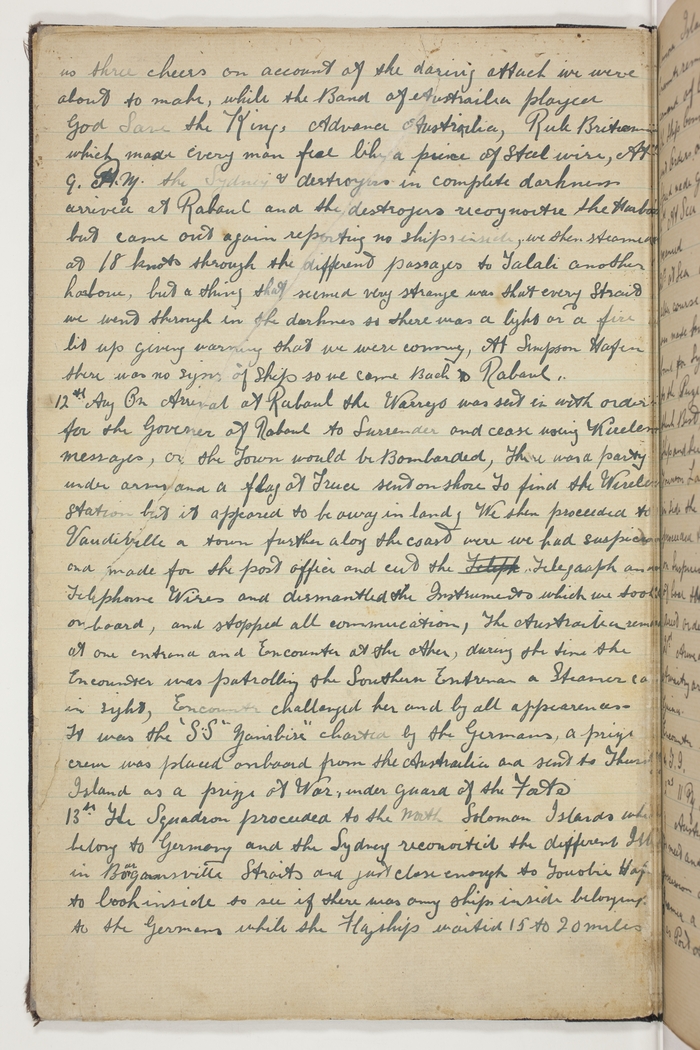 us three cheers on account of the daring attack we were
about to make, while the Band of Australia played
God Save the King, Advance Australia, Rule
which made every man feel like a piece of steel wire, At
9. P.M. the Sydney & destroyers in complete darkness
arrived at Rabaul and the destroyers recognoitre the
but came out again reporting no ships inside, we then steamed
at 18 knots through the different passages to Talali another
harbour, but a thing that seemed very strange was that every Strait
we went through in the darkness so there was a light or a fire
lit up giving warning that we were coming, At Simpson Hafen
there was no signs of Ship so we came Back to Rabaul.
12th Aug On Arrival at Rabaul the Warrego was sent in with orders
for the Governer of Rabaul to Surrender and cease using Wireless
messages, or the Town would be Bombarded, There was a party
under arms and a flag of Truce sent on shore To find the Wireless
Station but it appeared to be away in land, We then proceeded to
a town further along the coast were we had
and made for the post office and cut the Telegraph and
Telephone Wires and dismantled the Instruments which we took
on board, and stopped all commucation, The Australia
at one entrance and Encounter at the other, during the time the
Encounter was patrolling the Southern Entrence a Steamer
in sight, Encounter challenged her and by all appearences
It was the "S.S" charted by the Germans, a prize
crew was placed onboard from the Australia and sent to
Island as a prize of War, under guard of the
13th The Squadron proceeded to the North Soloman Islands
belong to Germany and the Sydney reconoitid the different
in Straits and just close enough to
to look inside to see if there was any ships inside belonging
to the Germans while the Flagship waited 15 to 20 miles